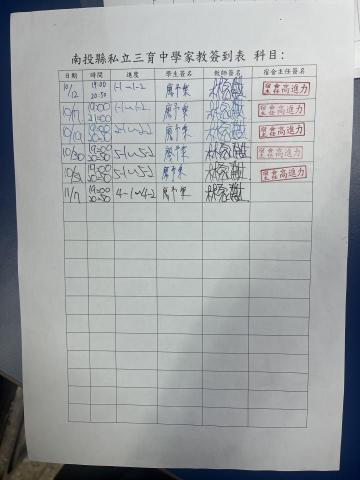 南投縣私立三育中學家教簽到表 科目:
日期 時間 進度 學生簽名 教師簽名 宿舍主任簽名
10/12 19:00 20:50 1-1~1-2 廖予棠 高進力
10/17 19:00 21:00 1-1~1-2 廖予棠 高進力
10/19 2-1~2-2 廖予棠 高進力
10/30 19:00 20:50 5-1~5-2 廖予棠 高進力
10/31 19:00 20:50 5-1~5-2 廖予棠 高進力
11/7 19:00 20:50 4-1~4-2 廖予棠